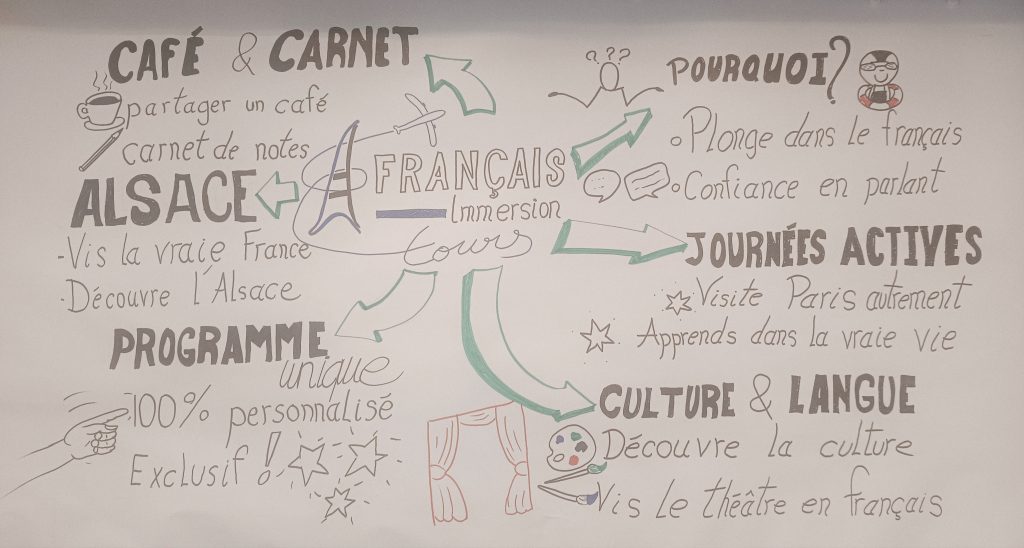 CAFÉ & CARNET
partager un café
carnet de notes
ALSACE
-Vis la vraie France
-Découvre l'Alsace
PROGRAMME
unique
100% personnalisé
Exclusif !
FRANÇAIS
Immersion
tours
? ? ?
POURQUOI?
Plonge dans le français
Confiance en parlant
JOURNÉES ACTIVES
Visite Paris autrement
Apprends dans la vraie vie
CULTURE & LANGUE
Découvre la culture
Vis le théâtre en français